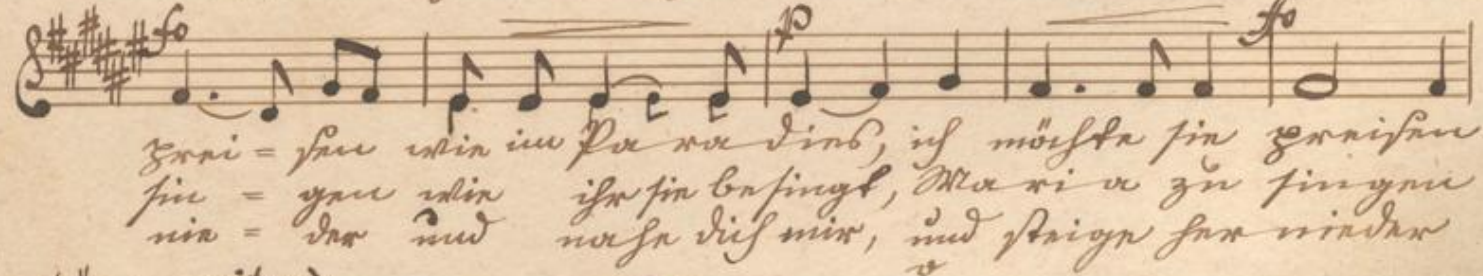 fo p fo
prei = sen wie im Pa ra dies, ich möchte sie preisen
sin = gen wie ihr sie besingt, Ma ri a zu singen
nie = der und nahe dich mir, und steige her nieder